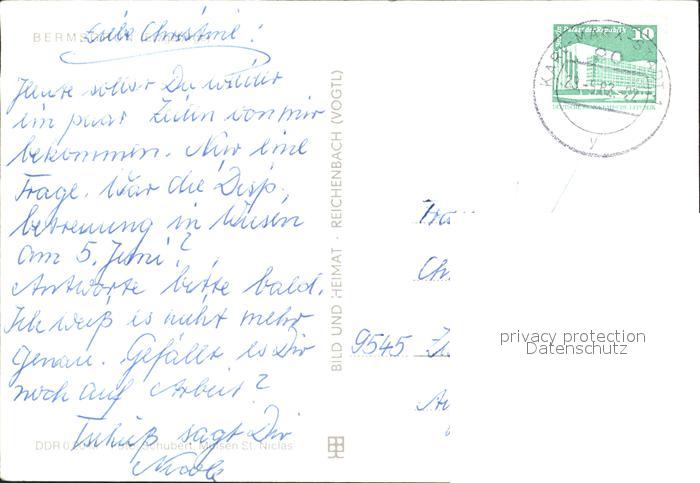 BERMS
Liebe Christine!
Heute sollst Du wieder
ein paar Zeilen von mir
bekommen. Nur eine
Frage. War die Disp.
betreuung in
am 5. Juni?
Antworte bitte bald.
Ich weiß es nicht mehr
genau. Gefällt es Dir
noch auf Arbeit?
Tschüß sagt Dir
Nicole
DDR Foto: Schubert, Mülsen St. Niclas
BILD UND HEIMAT · REICHENBACH (VOGTL)
Palast der Republik 10
DEUTSCHE DEMOKRATISCHE REPUBLIK
KARL-MARX-STADT 1
y
Fra
Ch
9545 Zu
privacy protection
Datenschutz